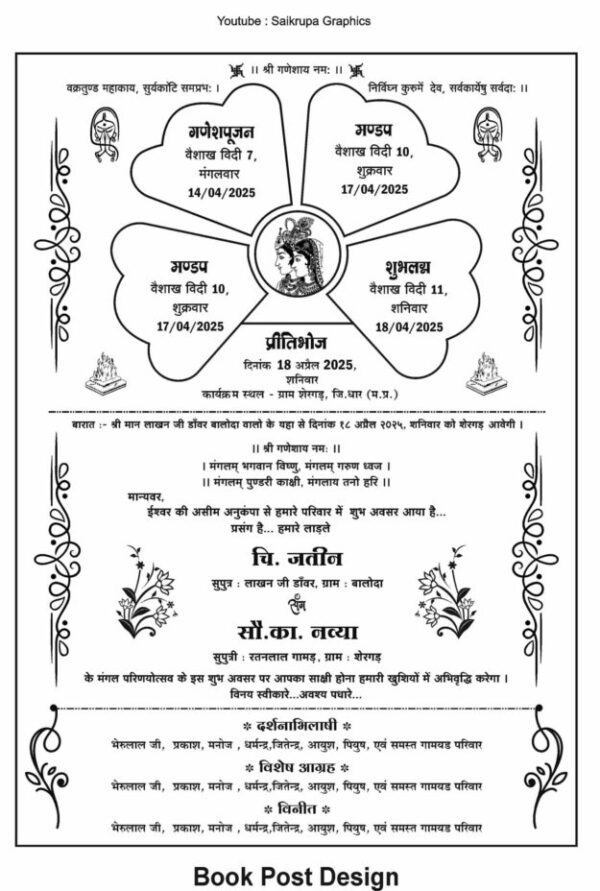 Youtube : Saikrupa Graphics
।। श्री गणेशाय नम: ।।
वक्रतुण्ड महाकाय, सुर्यकाेटि समप्रभ: ।
निर्विघ्न कुरुमें देव, सर्वकार्येषु सर्वदा: ।।
गणेशपूजन
वैशाख विदी 7,
मंगलवार
14/04/2025
मण्डप
वैशाख विदी 10,
शुक्रवार
17/04/2025
मण्डप
वैशाख विदी 10,
शुक्रवार
17/04/2025
शुभलग्न
वैशाख विदी 11,
शनिवार
18/04/2025
प्रीतिभोज
दिनांक 18 अप्रैल 2025,
शनिवार
कार्यक्रम स्थल - ग्राम शेरगड़, जि.धार (म.प्र.)
बारात :- श्री मान लाखन जी डाँवर बालोदा वालो के यहा से दिनांक १८ अप्रैल २०२५, शनिवार को शेरगड़ आवेगी ।
।। श्री गणेशाय नमः ।।
। मंगलम् भगवान विष्णु, मंगलम् गरुण ध्वज ।
।। मंगलम् पुण्डरी काक्षी, मंगलाय तनो हरि ।।
मान्यवर,
ईश्वर की असीम अनुकंपा से हमारे परिवार में शुभ अवसर आया है...
प्रसंग है... हमारे लाड़ले
चि. जतीन
सुपुत्र : लाखन जी डाँवर, ग्राम : बालोदा
संग
सौ.का. नव्या
सुपुत्री : रतनलाल गामड़, ग्राम : शेरगड़
के मंगल परिणयोत्सव के इस शुभ अवसर पर आपका साक्षी होना हमारी खुशियों में अभिवृद्धि करेगा ।
विनय स्वीकारे...अवश्य पधारे...
❇ दर्शनाभिलाषी ❇
भेरुलाल जी, प्रकाश, मनोज , धर्मन्द्र,जितेन्द्र, आयुश, पियुष, एवं समस्त गामयड परिवार
❇ विशेष आग्रह ❇
भेरुलाल जी, प्रकाश, मनोज , धर्मन्द्र,जितेन्द्र, आयुश, पियुष, एवं समस्त गामयड परिवार
❇ विनीत ❇
भेरुलाल जी, प्रकाश, मनोज , धर्मन्द्र,जितेन्द्र, आयुश, पियुष, एवं समस्त गामयड परिवार
Book Post Design